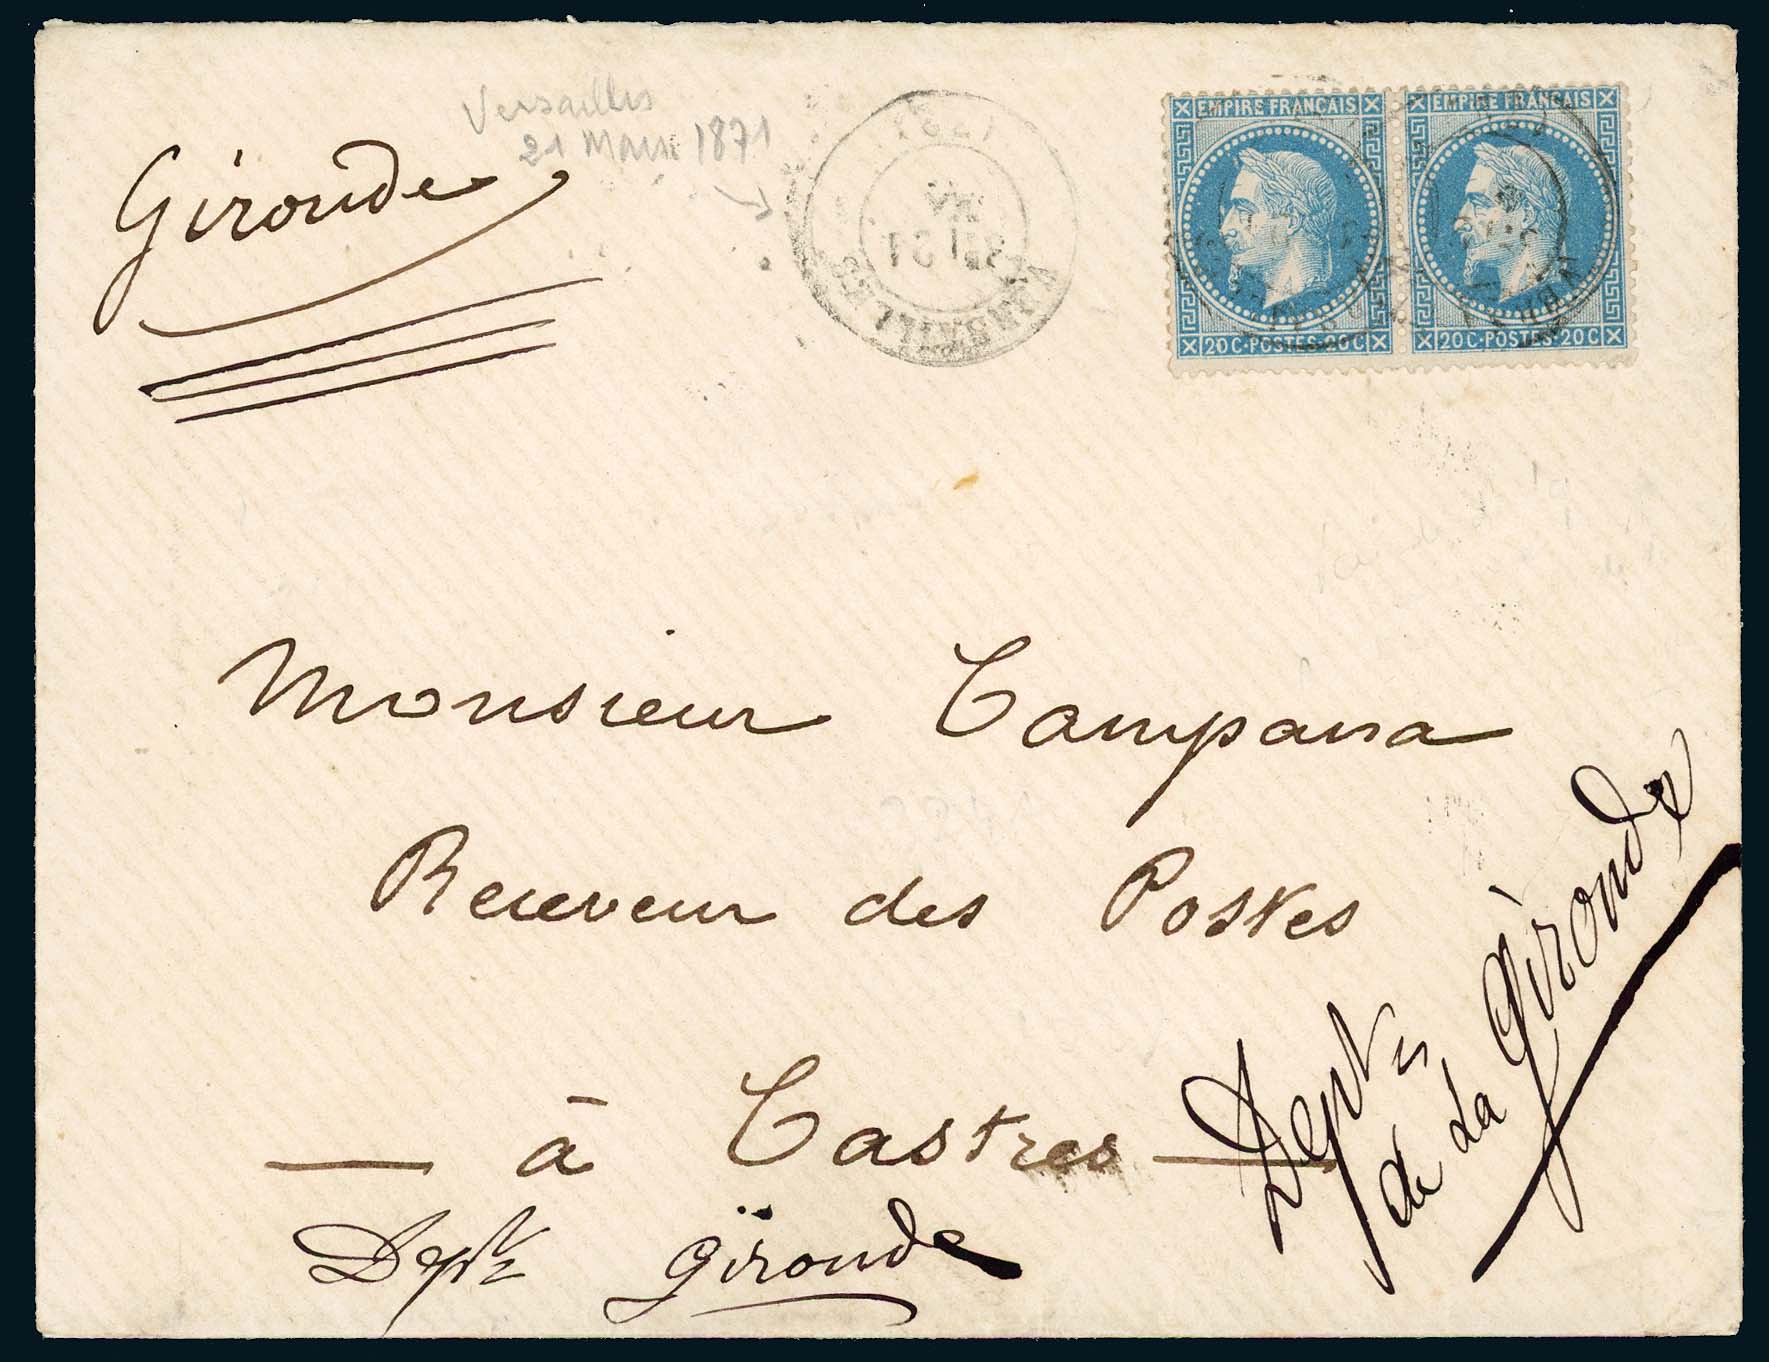 Versailles
21 Mars 1871
Gironde
VERSAILLES
EMPIRE FRANÇAIS EMPIRE FRANÇAIS
20 C·POSTES·20 C 20 C·POSTES·20 C
Monsieur Campana
Receveur des Postes
à Castres
Dept Gironde
Dept
de La Gironde